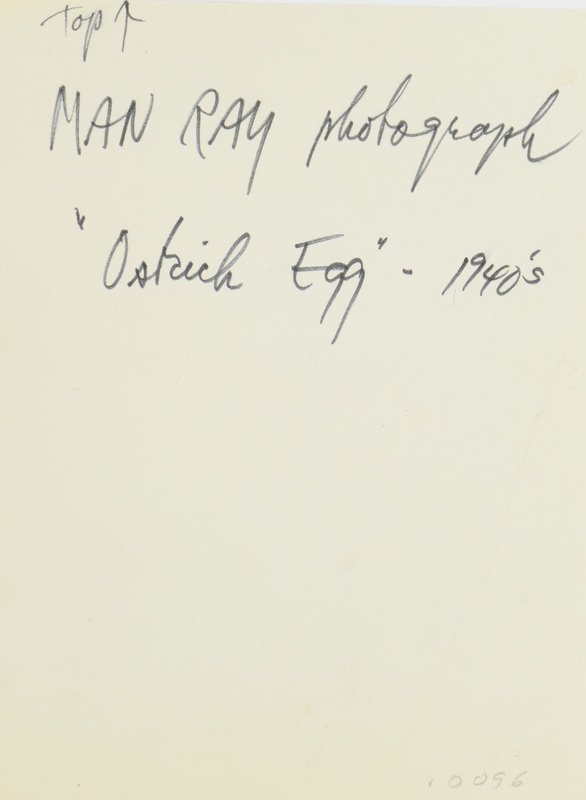 Top ↑
MAN RAY photograph
"Ostrich Egg" - 1940's
.0096